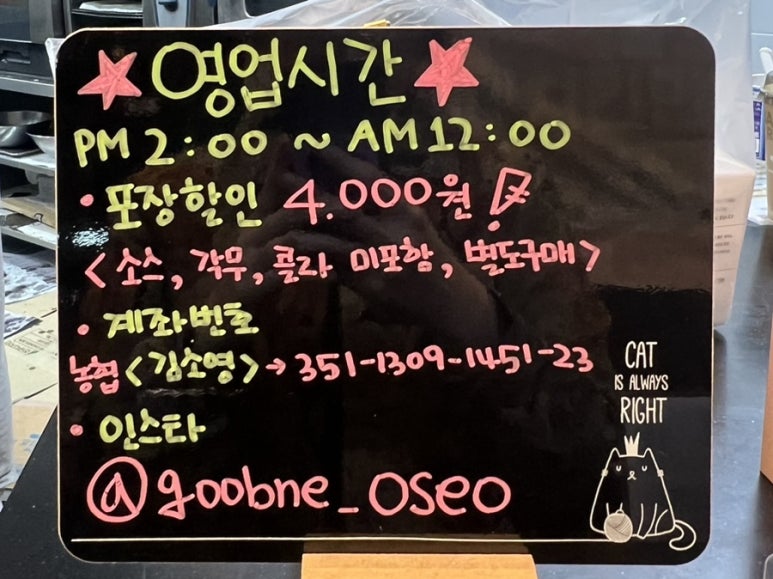 ★영업시간★
PM 2:00 ~ AM 12:00
• 포장할인 4.000원!
<소스, 각무, 콜라 미포함, 별도구매>
• 계좌번호
농협 <김소영> → 351-1309-1451-23
• 인스타
@goobne_oseo
CAT
IS ALWAYS
RIGHT